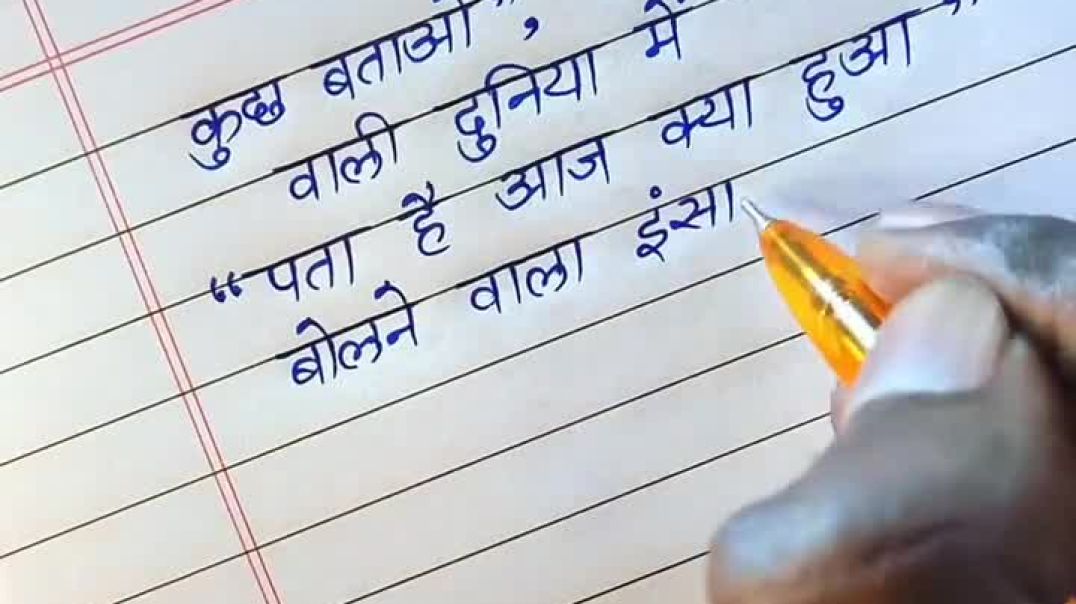 कुछ बताओ",
वाली दुनिया में
"पता है आज क्या हुआ"
बोलने वाला इंसा